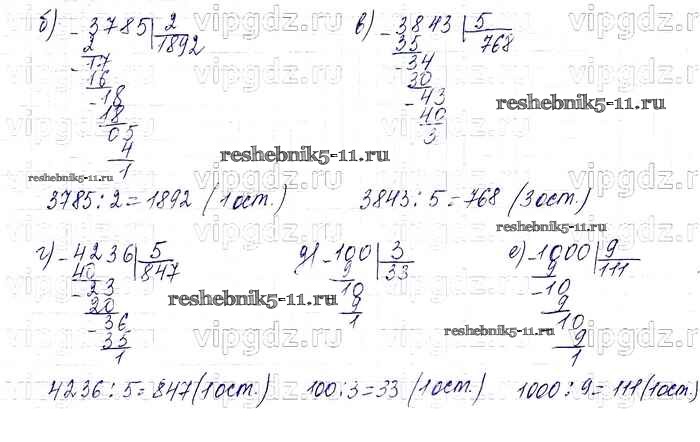 б) - 3785 | 2
2 1892
- 17
16
- 18
18
05
4
1
3785 : 2 = 1892 (1 ост.)
в) - 3843 | 5
35 768
- 34
30
- 43
40
3
3843 : 5 = 768 (3 ост.)
г) - 4236 | 5
40 847
- 23
20
- 36
35
1
4236 : 5 = 847 (1 ост.)
д) - 100 | 3
9 33
10
9
1
100 : 3 = 33 (1 ост.)
е) - 1000 | 9
9 111
- 10
9
10
9
1
1000 : 9 = 111 (1 ост.)
reshebnik5-11.ru
reshebnik5-11.ru
reshebnik5-11.ru
reshebnik5-11.ru
reshebnik5-11.ru
vipgdz.com